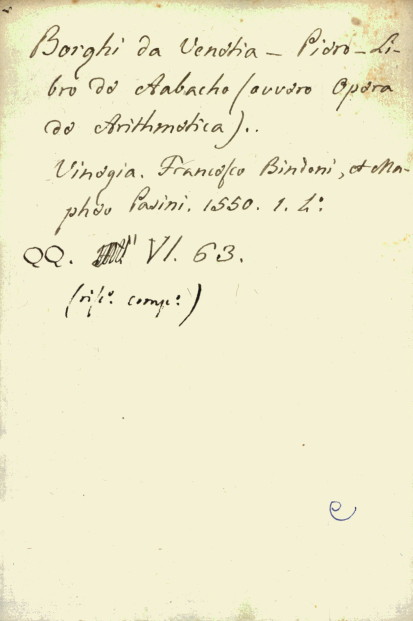 Borghi da Venetia – Piero – Li-
bro de Aabacho (ovvero Opera
de Arithmetica)..
Vinegia. Francesco Bindoni, et Ma-
pheo Pasini. 1550. 1. 4°:
QQ. VI. 63.
(risc.° comp.°)
e